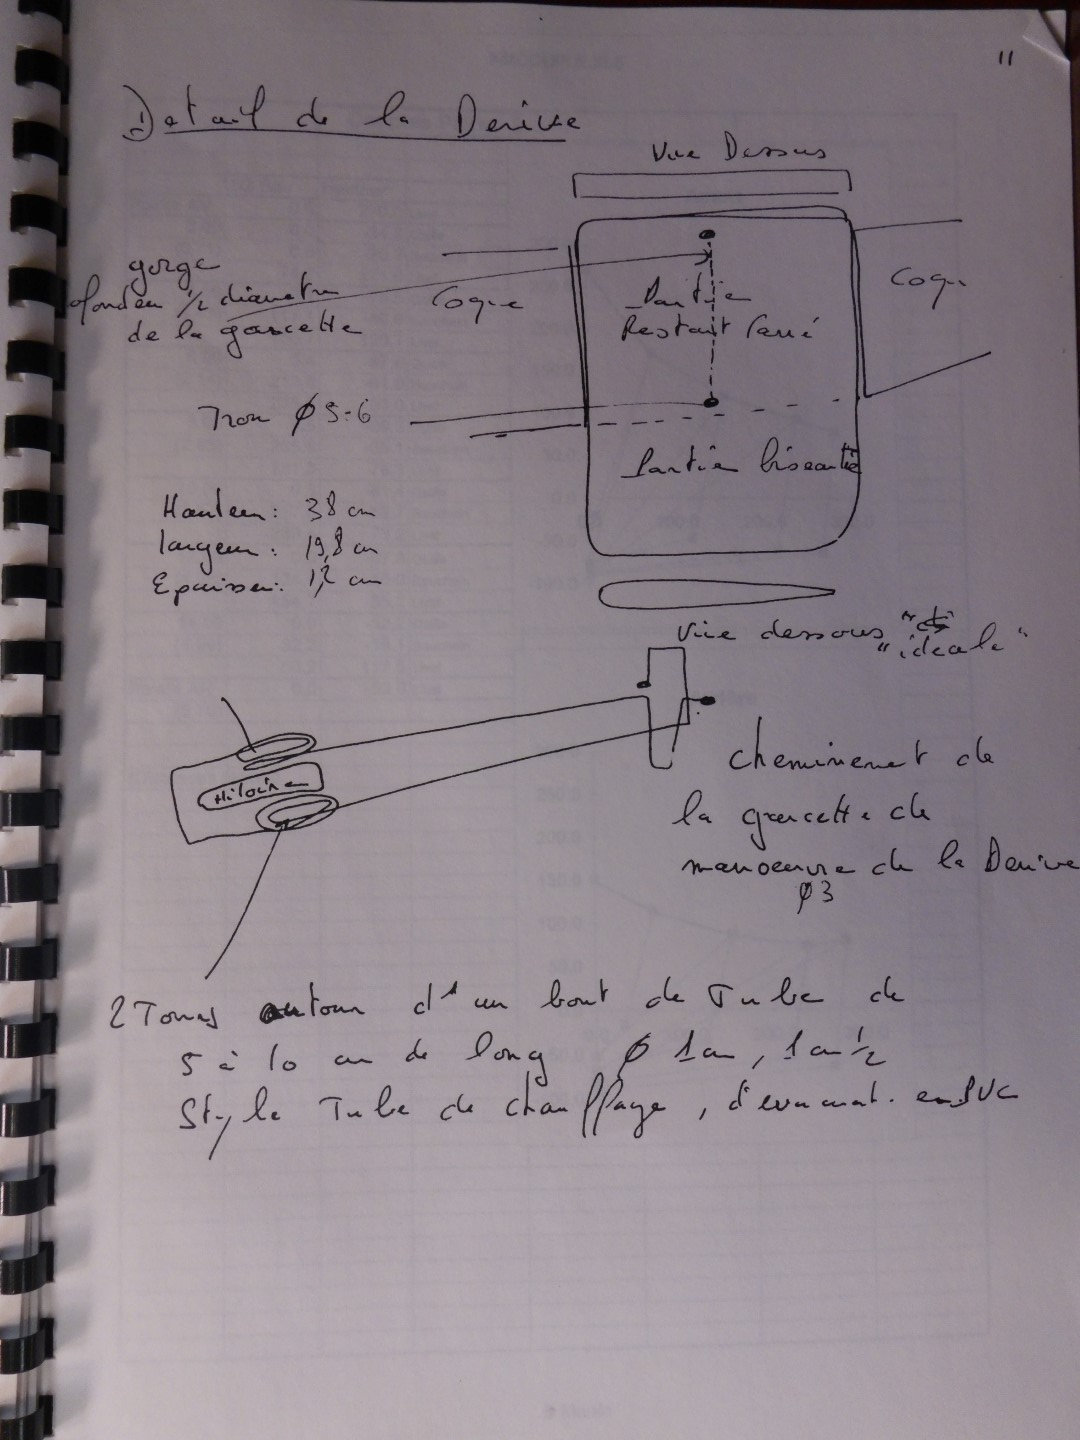 11
Detail de la Derive
Vue Dessus
gorge
1/2 diametre
de la garcette
Coque
Coque
Partie
Restant Carré
Trou ø 5-6
Partie biseautée
Hauteur: 38 cm
largeur: 19,8 cm
Epaisseur: 1,2 cm
Vue dessous
"ideale"
Hiloire
cheminement de
la garcette de
manoeuvre de la Derive
ø3
2 Tours autour d'un bout de Tube de
5 à 10 cm de long ø 1cm, 1cm 1/2
Style Tube de chauffage, d'evacuat. en PVC